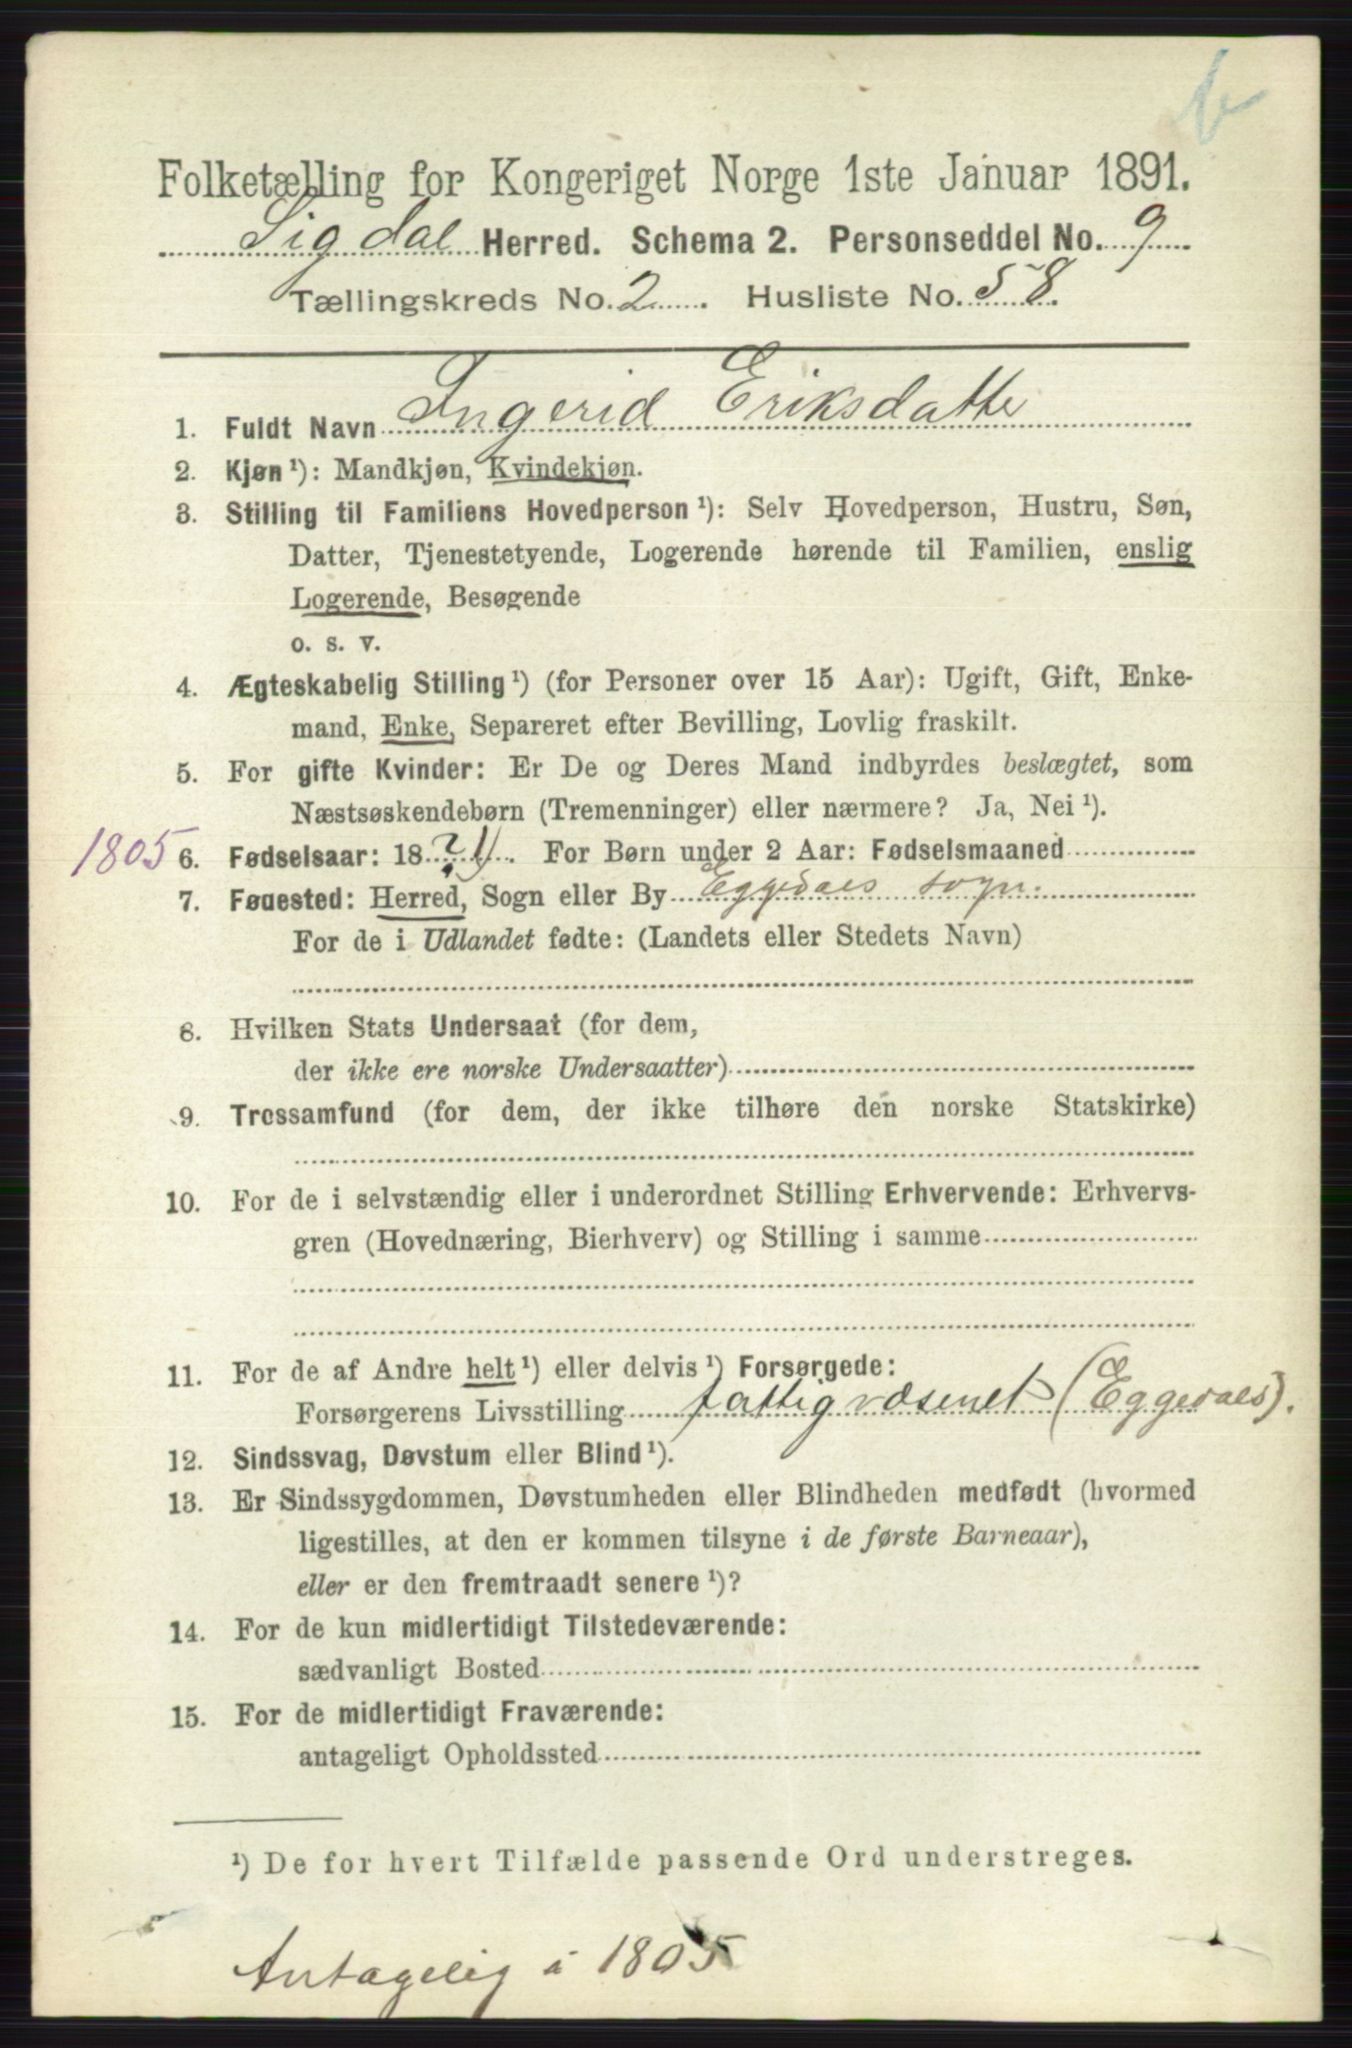 b
Folketælling for Kongeriget Norge 1ste Januar 1891.
Sigdal Herred. Schema 2. Personseddel No. 9
Tællingskreds No. 2. Husliste No. 58.
1. Fuldt Navn Ingerid Eriksdatte
2. Kjøn ¹): Mandkjøn, Kvindekjøn.
3. Stilling til Familiens Hovedperson ¹): Selv Hovedperson, Hustru, Søn,
Datter, Tjenestetyende, Logerende hørende til Familien, enslig
Logerende, Besøgende
o. s. v.
4. Ægteskabelig Stilling ¹) (for Personer over 15 Aar): Ugift, Gift, Enke-
mand, Enke, Separeret efter Bevilling, Lovlig fraskilt.
5. For gifte Kvinder: Er De og Deres Mand indbyrdes beslægtet, som
Næstsøskendebørn (Tremenninger) eller nærmere? Ja, Nei ¹).
1805 6. Fødselsaar: 18 ? For Børn under 2 Aar: Fødselsmaaned
7. Føuested: Herred, Sogn eller By Eggedals sogn.
For de i Udlandet fødte: (Landets eller Stedets Navn)
8. Hvilken Stats Undersaat (for dem,
der ikke ere norske Undersaatter)
9. Trossamfund (for dem, der ikke tilhøre den norske Statskirke)
10. For de i selvstændig eller i underordnet Stilling Erhvervende: Erhvervs-
gren (Hovednæring, Bierhverv) og Stilling i samme
11. For de af Andre helt ¹) eller delvis ¹) Forsørgede:
Forsørgerens Livsstilling fattigvæsenet (Eggedals).
12. Sindssvag, Døvstum eller Blind ¹).
13. Er Sindssygdommen, Døvstumheden eller Blindheden medfødt (hvormed
ligestilles, at den er kommen tilsyne i de første Barneaar),
eller er den fremtraadt senere ¹)?
14. For de kun midlertidigt Tilstedeværende:
sædvanligt Bosted
15. For de midlertidigt Fraværende:
antageligt Opholdssted
¹) De for hvert Tilfælde passende Ord understreges.
Antagelig i 1805